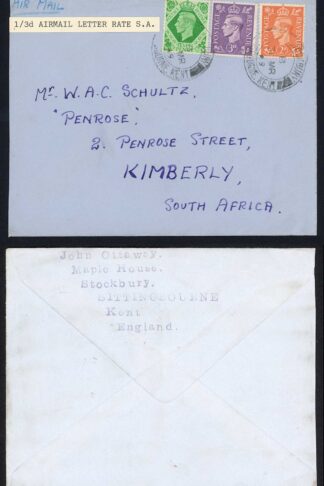 AIR MAIL
1/3d AIRMAIL LETTER RATE S.A.
POSTAGE REVENUE
KENT
Mr. W.A.C. SCHULTZ,
"PENROSE",
2. PENROSE STREET,
KIMBERLY,
SOUTH AFRICA.
John Ottaway.
Maple House.
Stockbury.
SITTINGBOURNE
Kent
England.